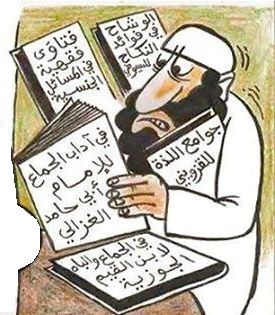 الوشاح
في فوائد
النكاح
للسيوطي
فتاوى
فقهية
في المسائل
الجنسية
جوامع اللذة
للقزويني
في آداب الجماع
للإمام
أبي حامد
الغزالي
في الجماع والباه
لابن القيم
الجوزية